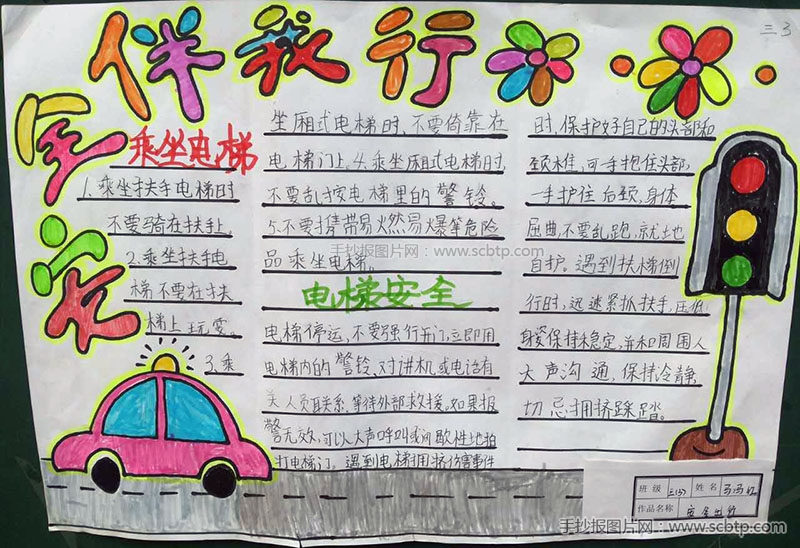 安全伴我行
三3
乘坐电梯
1.乘坐扶手电梯时
不要骑在扶手上
2.乘坐扶手电
梯不要在扶
梯上玩耍。
3.乘
坐厢式电梯时,不要倚靠在
电梯门上。4.乘坐厢式电梯时,
不要乱按电梯里的警铃。
5.不要携带易燃易爆等危险
品乘坐电梯。
电梯安全
电梯停运,不要强行开门,立即用
电梯内的警铃、对讲机或电话有
关人员联系,等待外部救援。如果报
警无效,可以大声呼叫或间歇性地拍
打电梯门。遇到电梯拥挤伤害事件
时,保护好自己的头部和
颈椎,可手抱住头部,
一手护住后颈,身体
屈曲,不要乱跑,就地
自护。遇到扶梯倒
行时,迅速紧抓扶手,压低
身姿保持稳定,并和周围人
大声沟通,保持冷静
切忌拥挤踩踏。
班级 三(3) 姓名
作品名称 安全出行
手抄报图片网:www.scbtp.com
手抄报图片网:www.scbtp.com